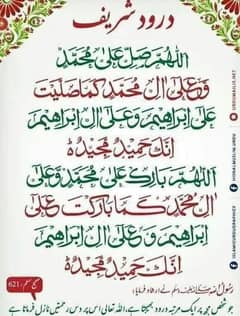 درود شریف
اَللّٰهُمَّ صَلِّ عَلٰى مُحَمَّدٍ
وَّعَلٰى اٰلِ مُحَمَّدٍ كَمَا صَلَّيْتَ
عَلٰى اِبْرَاهِيْمَ وَعَلٰى اٰلِ اِبْرَاهِيْمَ
اِنَّكَ حَمِيْدٌ مَّجِيْدٌ
اَللّٰهُمَّ بَارِكْ عَلٰى مُحَمَّدٍ وَّعَلٰى
اٰلِ مُحَمَّدٍ كَمَا بَارَكْتَ عَلٰى
اِبْرَاهِيْمَ وَعَلٰى اٰلِ اِبْرَاهِيْمَ
اِنَّكَ حَمِيْدٌ مَّجِيْدٌ
رسول اللہ صلی اللہ علیہ وسلم نے ارشاد فرمایا:
جو شخص مجھ پر ایک مرتبہ درود بھیجتا ہے، اللہ تعالیٰ اس پر دس رحمتیں نازل فرماتا ہے
صحیح مسلم، 621